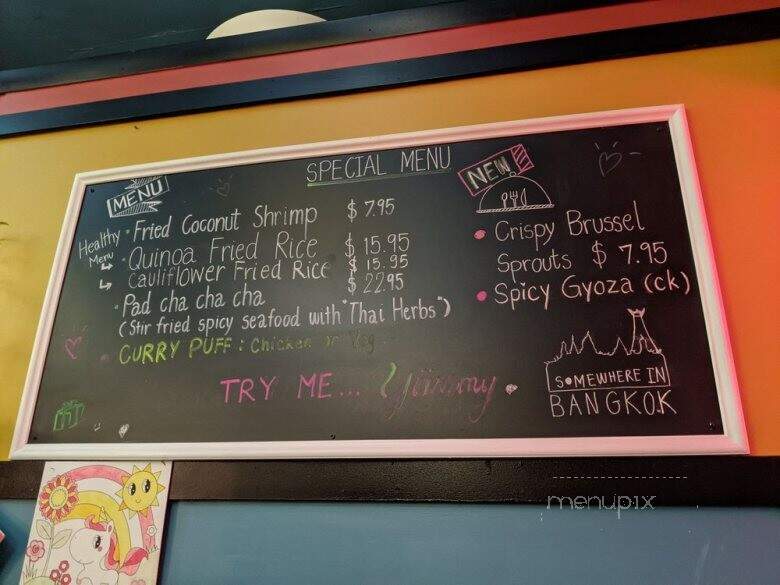 SPECIAL MENU
MENU
Healthy Menu
• Fried Coconut Shrimp $ 7.95
• Quinoa Fried Rice $ 15.95
Cauliflower Fried Rice $ 15.95
• Pad cha cha cha $ 22.95
(Stir fried spicy seafood with "Thai Herbs")
• CURRY PUFF : Chicken or Veg
TRY ME... Yummy
NEW
• Crispy Brussel
Sprouts $ 7.95
• Spicy Gyoza (ck)
SOMEWHERE IN
BANGKOK
menupix